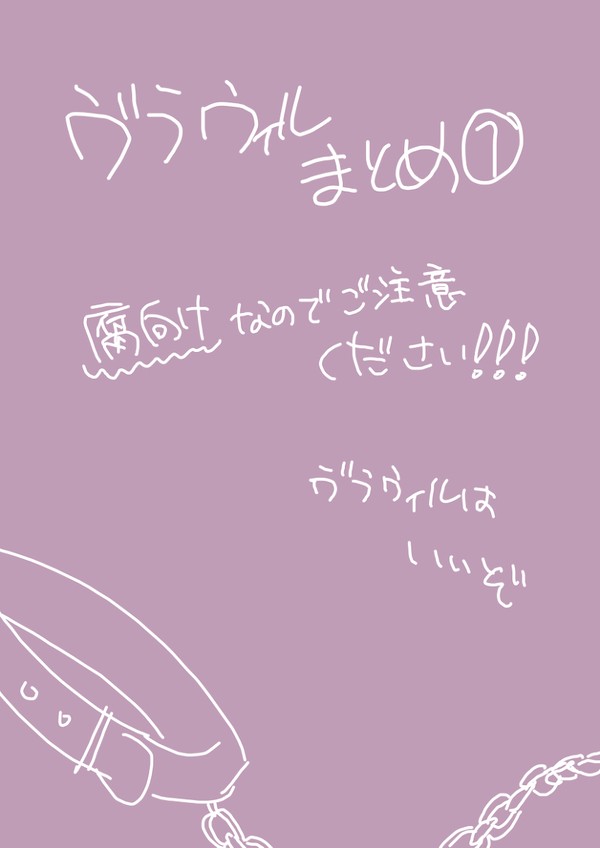 ヴラウィル
まとめ①
腐向けなのでご注意
ください!!!
ヴラウィルは
いいぞ